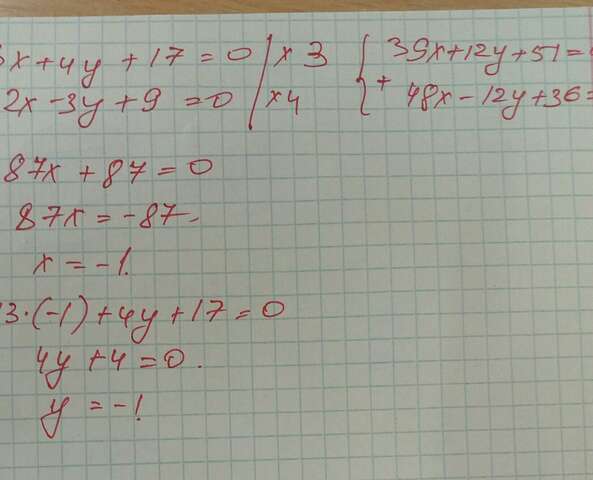 3x + 4y + 17 = 0 | × 3 { 39x + 12y + 51 =
2x - 3y + 9 = 0 | × 4 + 48x - 12y + 36 =
87x + 87 = 0
87x = -87
x = -1.
3·(-1) + 4y + 17 = 0
4y + 4 = 0.
y = -1